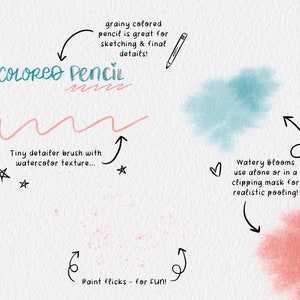 grainy colored
pencil is great for
sketching & final
details!
COLORED PENCIL
Tiny detailer brush with
watercolor texture...
Watery Blooms
use alone or in a
clipping mask for
realistic pooling!
Paint flicks - for FUN!